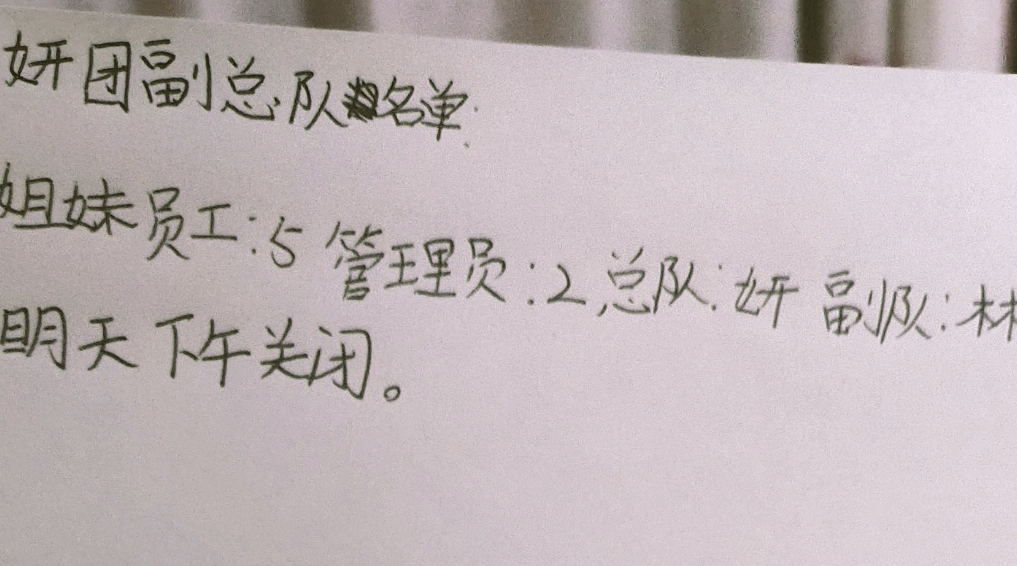 妍团副总队名单
姐妹员工:5 管理员:2 总队:妍 副队:林
明天下午关闭。